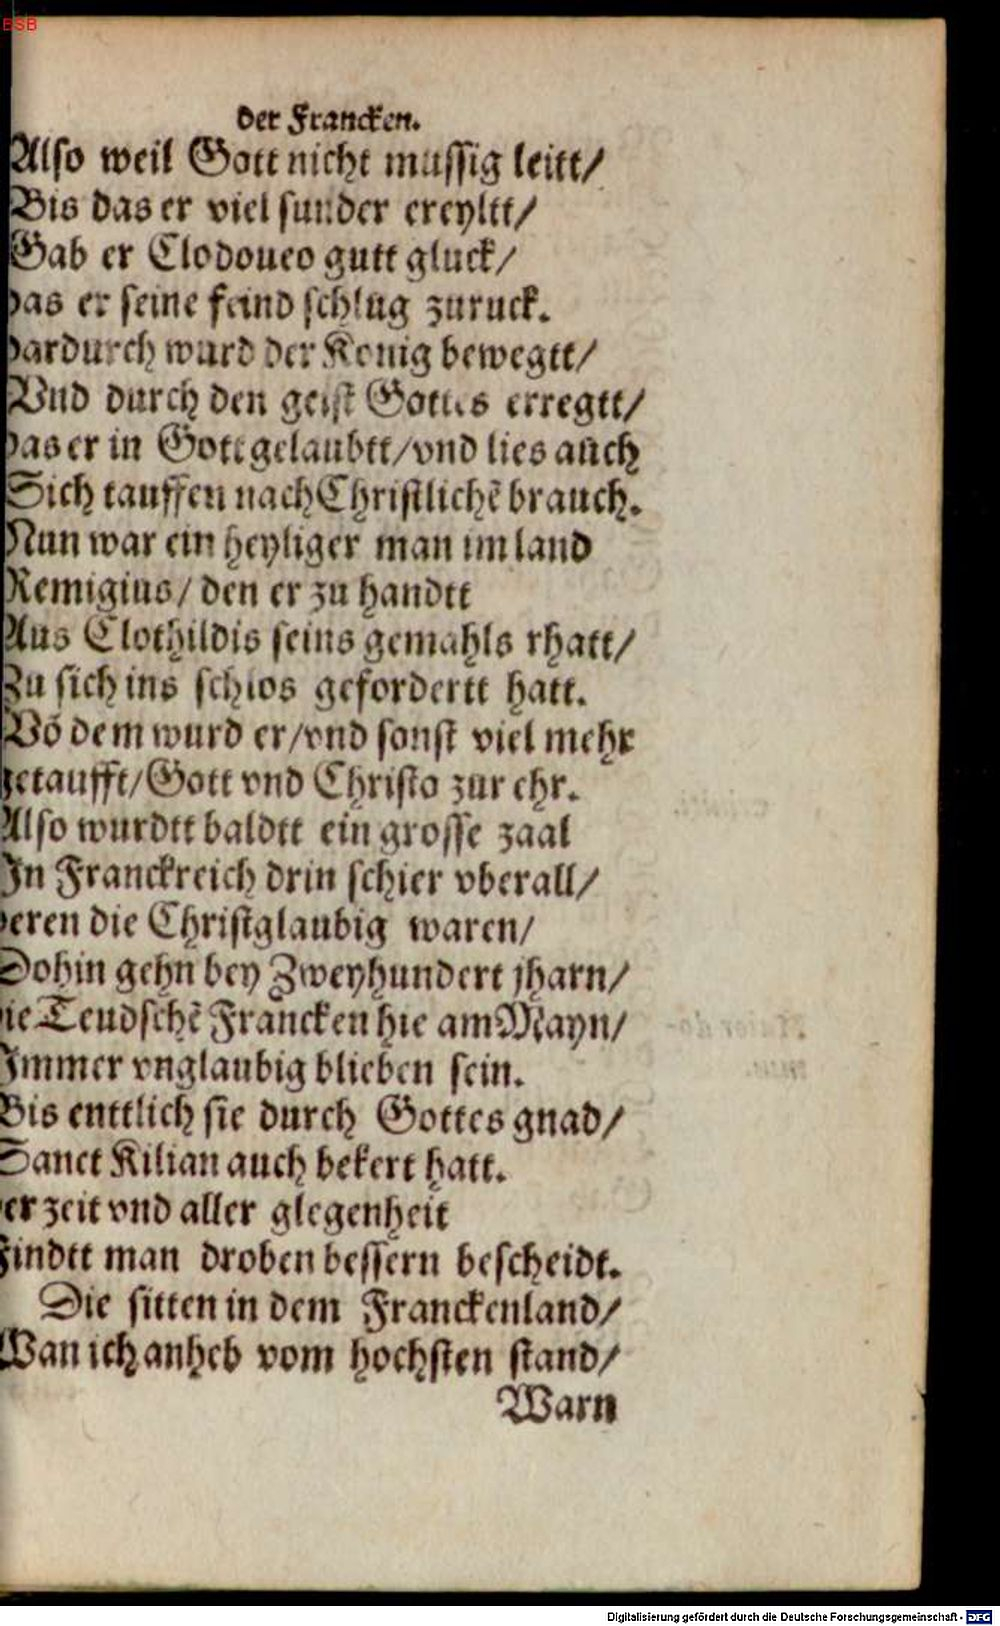 BSB
der Francken.
Also weil Gott nicht mussig leitt/
Bis das er viel sunder ereyltt/
Gab er Clodoueo gutt gluck/
das er seine feind schlug zuruck.
dardurch ward der Konig bewegtt/
Vnd durch den geist Gottes erregtt/
das er in Gott gelaubtt/vnd lies auch
Sich tauffen nach Christlichẽ brauch.
Nun war ein heyliger man im land
Remigius/ den er zu handtt
Aus Clothildis seins gemahls rhatt/
Zu sich ins schlos gefordertt hatt.
Võ dem wurd er/vnd sonst viel mehr
getaufft/Gott vnd Christo zur ehr.
Also wurdtt baldtt ein grosse zaal
In Franckreich drin schier vberall/
deren die Christglaubig waren/
Dohin gehn bey Zweyhundert jharn/
die Teudschẽ Francken hie am Mayn/
Immer vnglaubig blieben sein.
Bis enttlich sie durch Gottes gnad/
Sanct Kilian auch bekert hatt.
der zeit vnd aller glegenheit
Findtt man droben bessern bescheidt.
Die sitten in dem Franckenland/
Wan ich anheb vom hochsten stand/
Warn
Digitalisierung gefördert durch die Deutsche Forschungsgemeinschaft - DFG